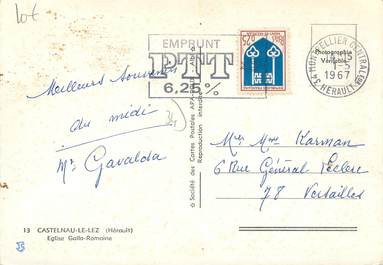 10€
EMPRUNT
PTT
6,25%
Photographie
Véritable
34 MONTPELLIER CENTRAL
-5
1967
HERAULT
Meilleurs Souvenirs
du midi
Mr Gavalda
34
Société des Cartes Postales APA-POUX - Albi
Reproduction interdite
Mr Mme Karman
6 Rue Général Leclerc
78 Versailles
13 CASTELNAU-LE-LEZ (Hérault)
Eglise Gallo-Romaine